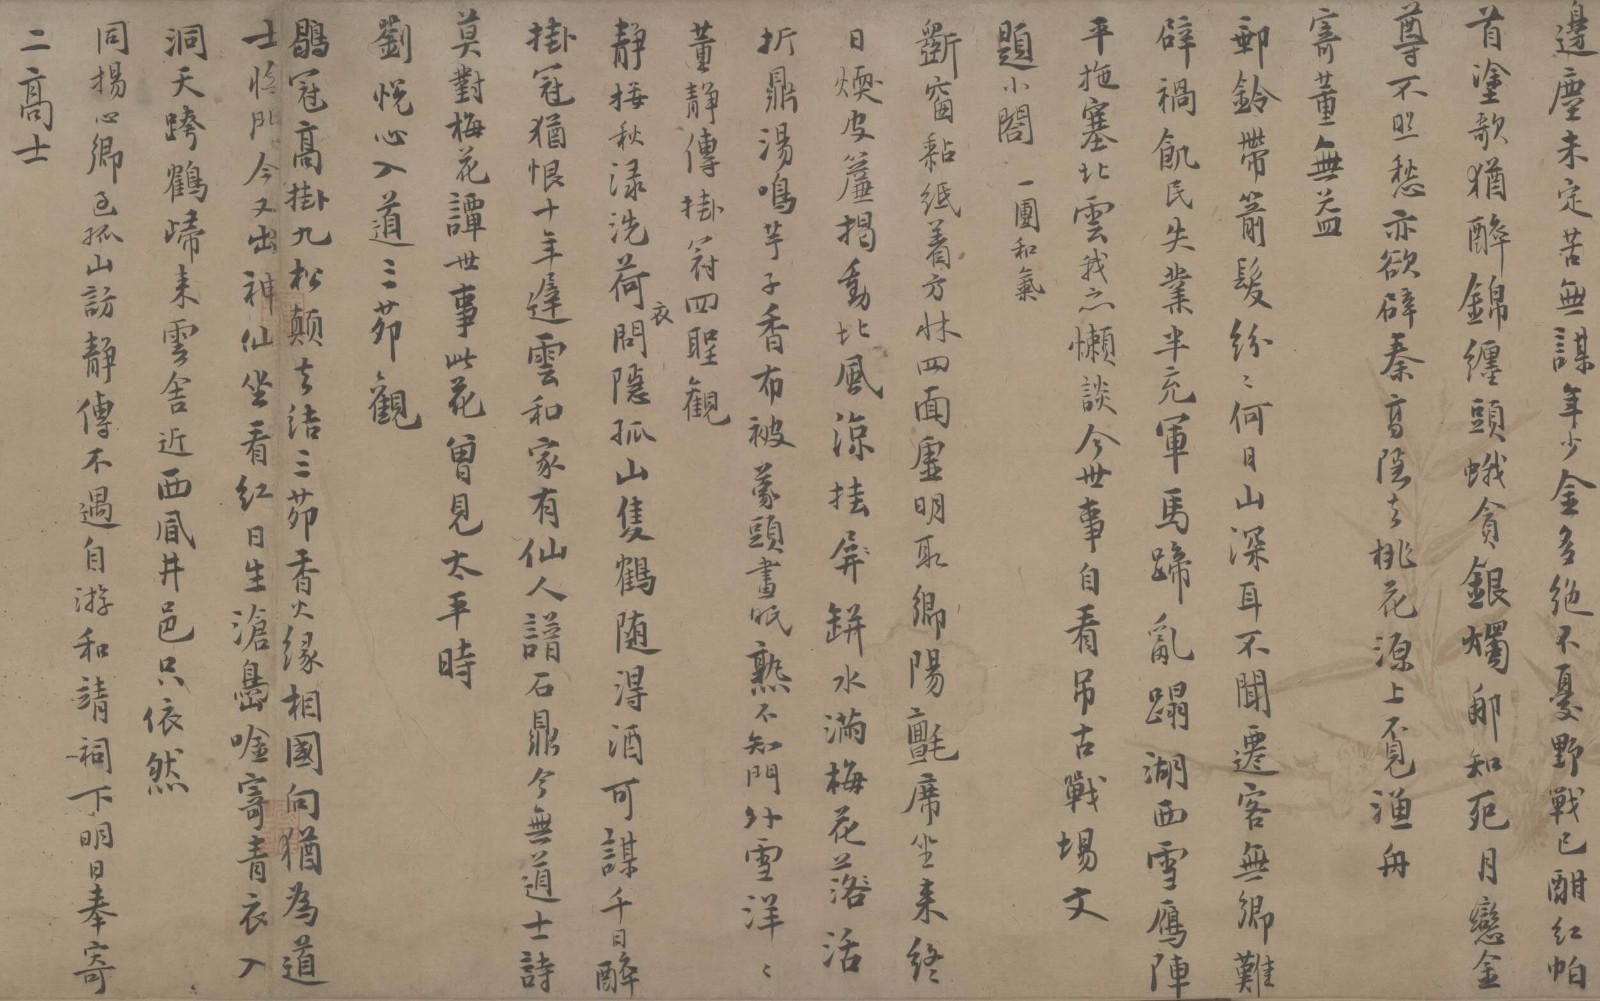 邊塵未定苦無謀年少金多絕不憂野戰已酣紅帕
首塗歌猶醉錦纏頭蛾貪銀燭那知死月戀金
尊不照愁亦欲辟秦高隱去桃花源上覓漁舟
寄董無益
郵鈴帶箭髮紛〻何日山深耳不聞遷客無鄉難
辟禍飢民失業半充軍馬蹄亂蹋湖西雪鴈陣
平拖塞北雲我亦懶談今世事自看吊古戰場文
題小閣 一團和氣
斷窗黏紙着方牀四面虛明取鄉陽氈席坐來終
日煖皮簾揭動北風涼挂屏缾水滿梅花落活
折鼎湯鳴芋子香布被蒙頭晝眠熟不知門外雪洋〻
董靜傳掛冠四聖觀
靜接秋淥洗荷衣問隱孤山隻鶴隨得酒可謀千日醉
掛冠猶恨十年遲雲和家有仙人譜石鼎今無道士詩
莫對梅花譚世事此花曾見太平時
劉悅心入道三茆觀
鶡冠高掛九松顛去結三茆香火緣相國向猶為道
士將門今又出神仙坐看紅日生滄島唫寄青衣入
洞天跨鶴歸來雲舍近西風井邑只依然
同楊心卿過孤山訪靜傳不遇自游和靖祠下明日奉寄
二高士